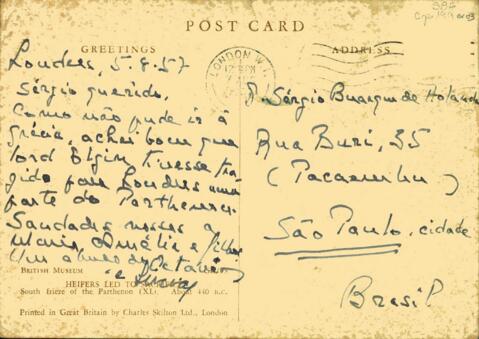 POST CARD
GREETINGS
ADDRESS
LONDON W
Londres, 5.8.57
Sérgio querido,
Como não pude ir à
Grécia, achei bom que
Lord Elgin tivesse tra
gido para Londres uma
parte do Parthenon.
Saudades nossas a
Maria Amélia e filhos
Um abraço do Octavio
e Lucia
BRITISH MUSEUM
HEIFERS LED TO
South frieze of the Parthenon (XL). About 440 B.C.
Printed in Great Britain by Charles Skilton Ltd., London
Sérgio Buarque de Holanda
Rua Buri, 35
(Pacaembu)
São Paulo, cidade
Brasil